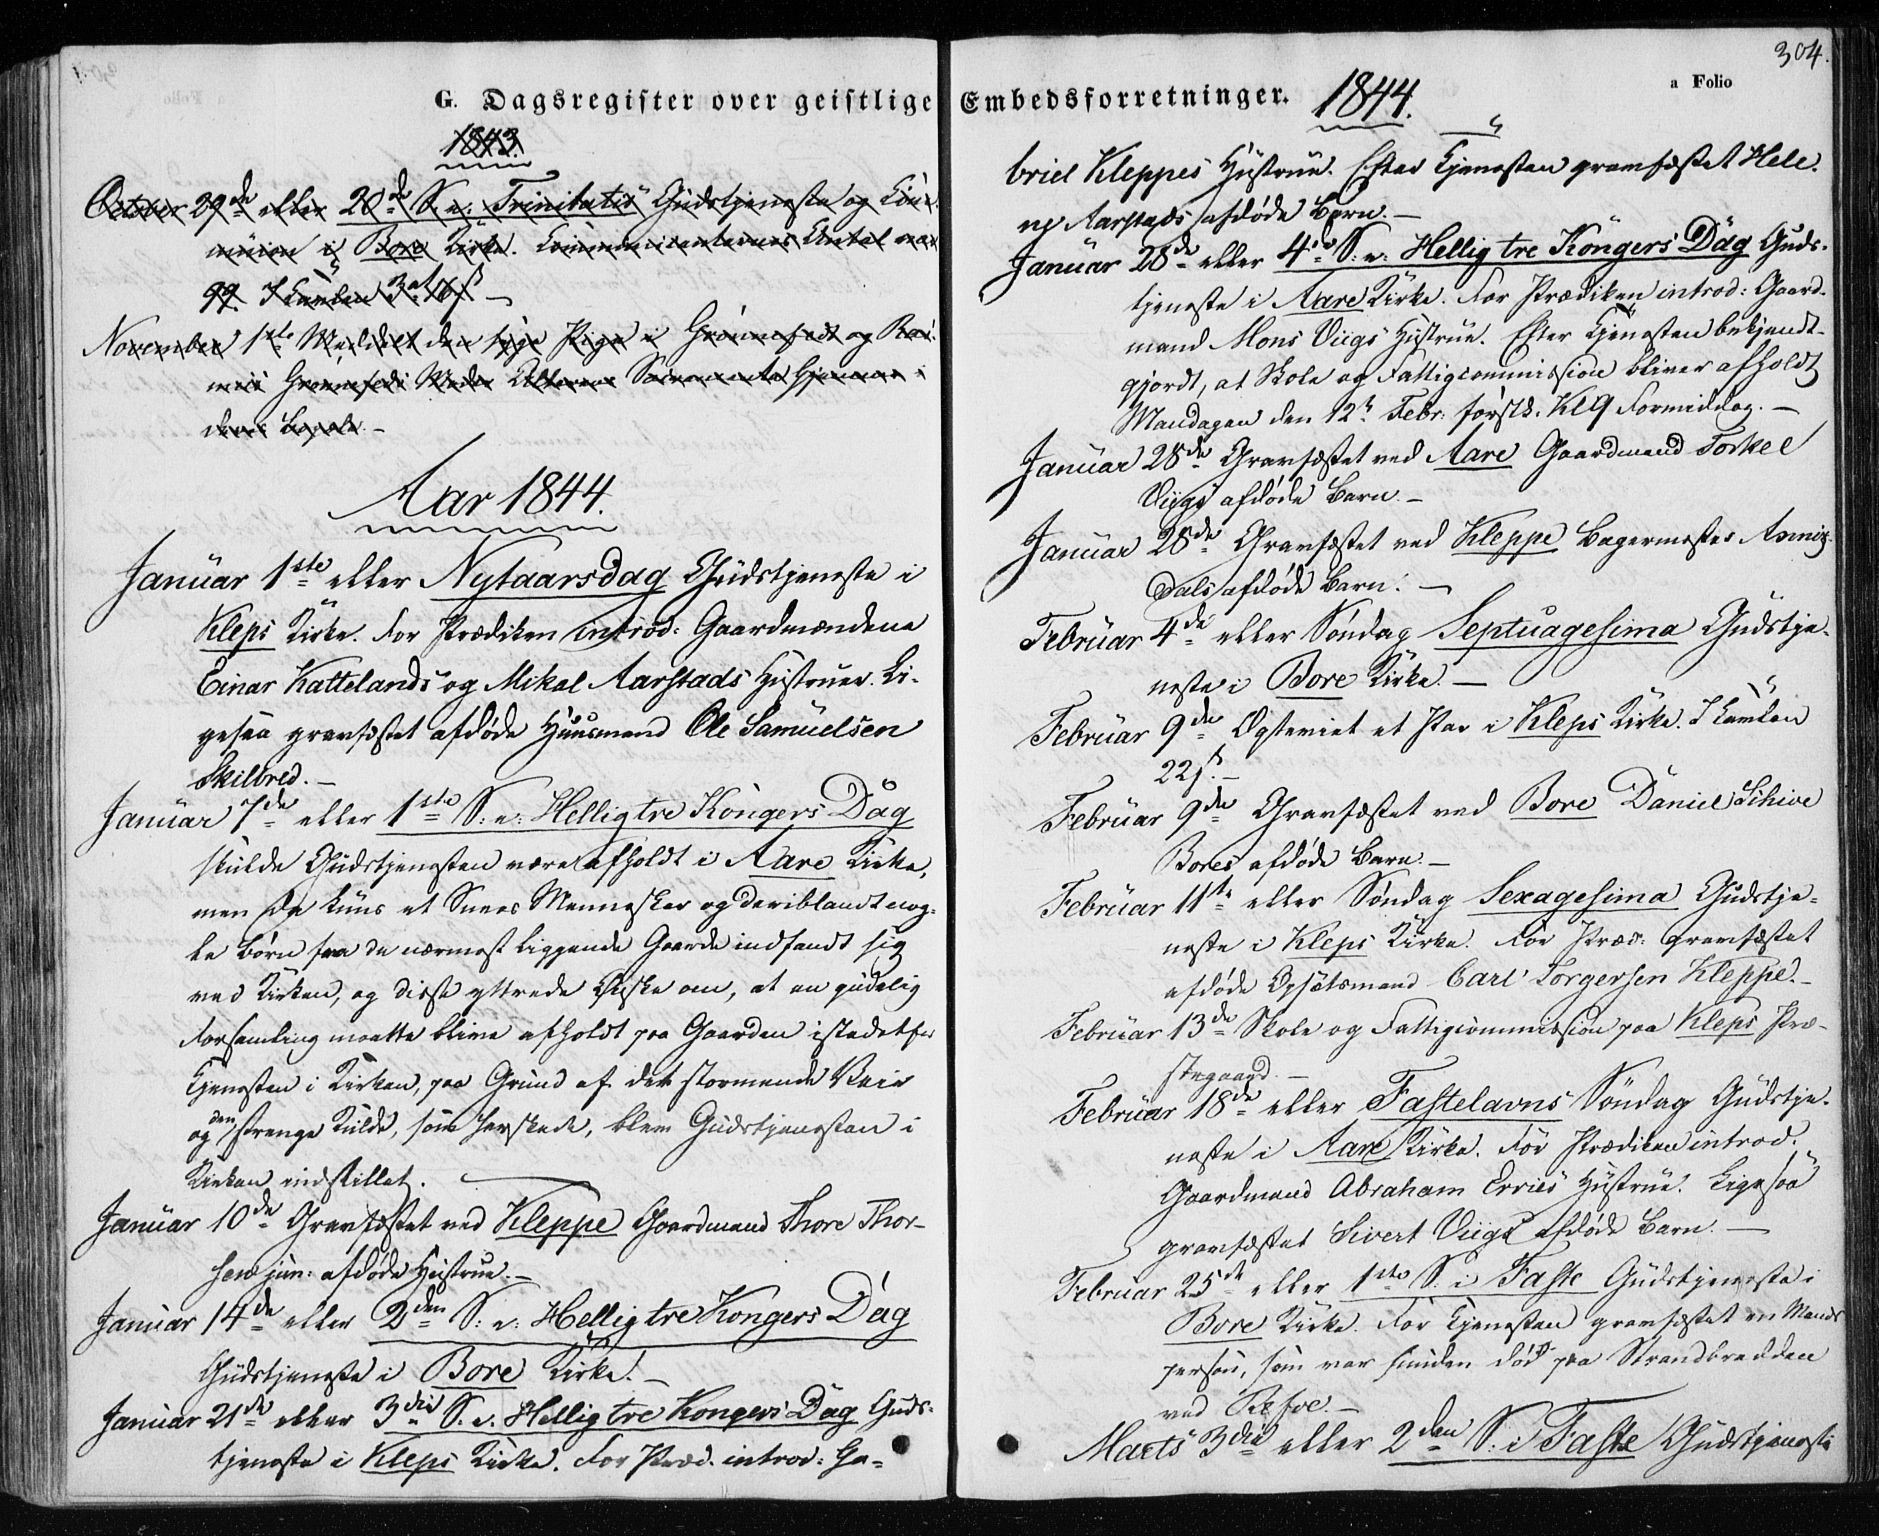 G. Dagsregister over geistlige
1843.
October 29de eller 20de S. e. Trinitatis Gudstjeneste og Com
munion i Bore Kirke. Communicanternes Antal var
99. I Tavlen
November 1ste Meddelt den syge Pige i
Grønnefeds Moder Alterens Sacramente hjemme i
deres Bopæl. —
Aar 1844.
Januar 1ste eller Nytaarsdag Gudstjeneste i
Kleps Kirke. For Prædiken introd: Gaardmændene
Einar Kattelands og Mikal Aarstads Hustruer. Li-
gesaa gravfæstet afdøde Huusmand Ole Samuelsen
Skilbred. —
Januar 7de eller 1ste S: e: Hellig tre Kongers Dag
skulde Gudstjenesten være afholdt i Aare Kirke,
men da kuns et Snees Mennesker og deriblandt nog-
le Børn fra de nærmest liggende Gaarde indfandt sig
ved Kirken, og disse yttrede Ønske om, at en gudelig
Forsamling maatte blive afholdt paa Gaarden istedetfor
Tjenesten i Kirken, paa Grund af det stormende Veir
og den strenge Kulde, som herskede, blev Gudstjenesten i
Kirken indstillet. —
Januar 10de Gravfæstet ved Kleppe Gaardmand Thore Thor-
sen jun: afdøde Hustrue. —
Januar 14de eller 2den S: e: Hellig tre Kongers Dag
Gudstjeneste i Bore Kirke. —
Januar 21de eller 3die S. e. Hellig tre Kongers Dag Guds-
tjeneste i Kleps Kirke. For Præd. introd: Ga-
304.
Embedsforretninger. 1844.
a Folio
briel Kleppes Hustrue. Efter Tjenesten gravfæstet Hele.
ny Aarstads afdøde Barn. —
Januar 28de eller 4de S: e: Hellig tre Kongers Dag Guds-
tjeneste i Aare Kirke. For Prædiken introd: Gaard-
mand Mons Viigs Hustrue. Efter Tjenesten bekjendt-
gjordt, at Skole og Fattigcommission bliver afholdt
Mandagen den 12te Febr: førstk. Kl 9 Formiddag. —
Januar 28de Gravfæstet ved Aare Gaardmand Torkel
Viigs afdøde Barn. —
Januar 28de Gravfæstet ved Kleppe Bagermester
dals afdøde Barn. —
Februar 4de eller Søndag Septuagesima Gudstje-
neste i Bore Kirke. —
Februar 9de Egteviet et Par i Kleps Kirke. I Tavlen
22 s. —
Februar 9de Gravfæstet ved Bore Daniel Schive
Bores afdøde Barn. —
Februar 11te eller Søndag Sexagesima Gudstje-
neste i Kleps Kirke. For Præd: gravfæstet
afdøde Opsidsmand Carl Torgersen Kleppe. —
Februar 13de Skole og Fattigcommission paa Kleps Præ-
stegaard. —
Februar 18de eller Fastelavns Søndag Gudstje-
neste i Aare Kirke. For Prædiken introd.
Gaardmand Abraham Ervies Hustrue. Ligesaa
gravfæstet Sivert Viigs afdøde Barn. —
Februar 25de eller 1ste S. i Faste Gudstjeneste i
Bore Kirke. For Tjenesten gravfæstet en Mands
person, som var funden død paa Strandbredden
ved Refve. —
Marts 3die eller 2den S. i Faste Gudstjeneste